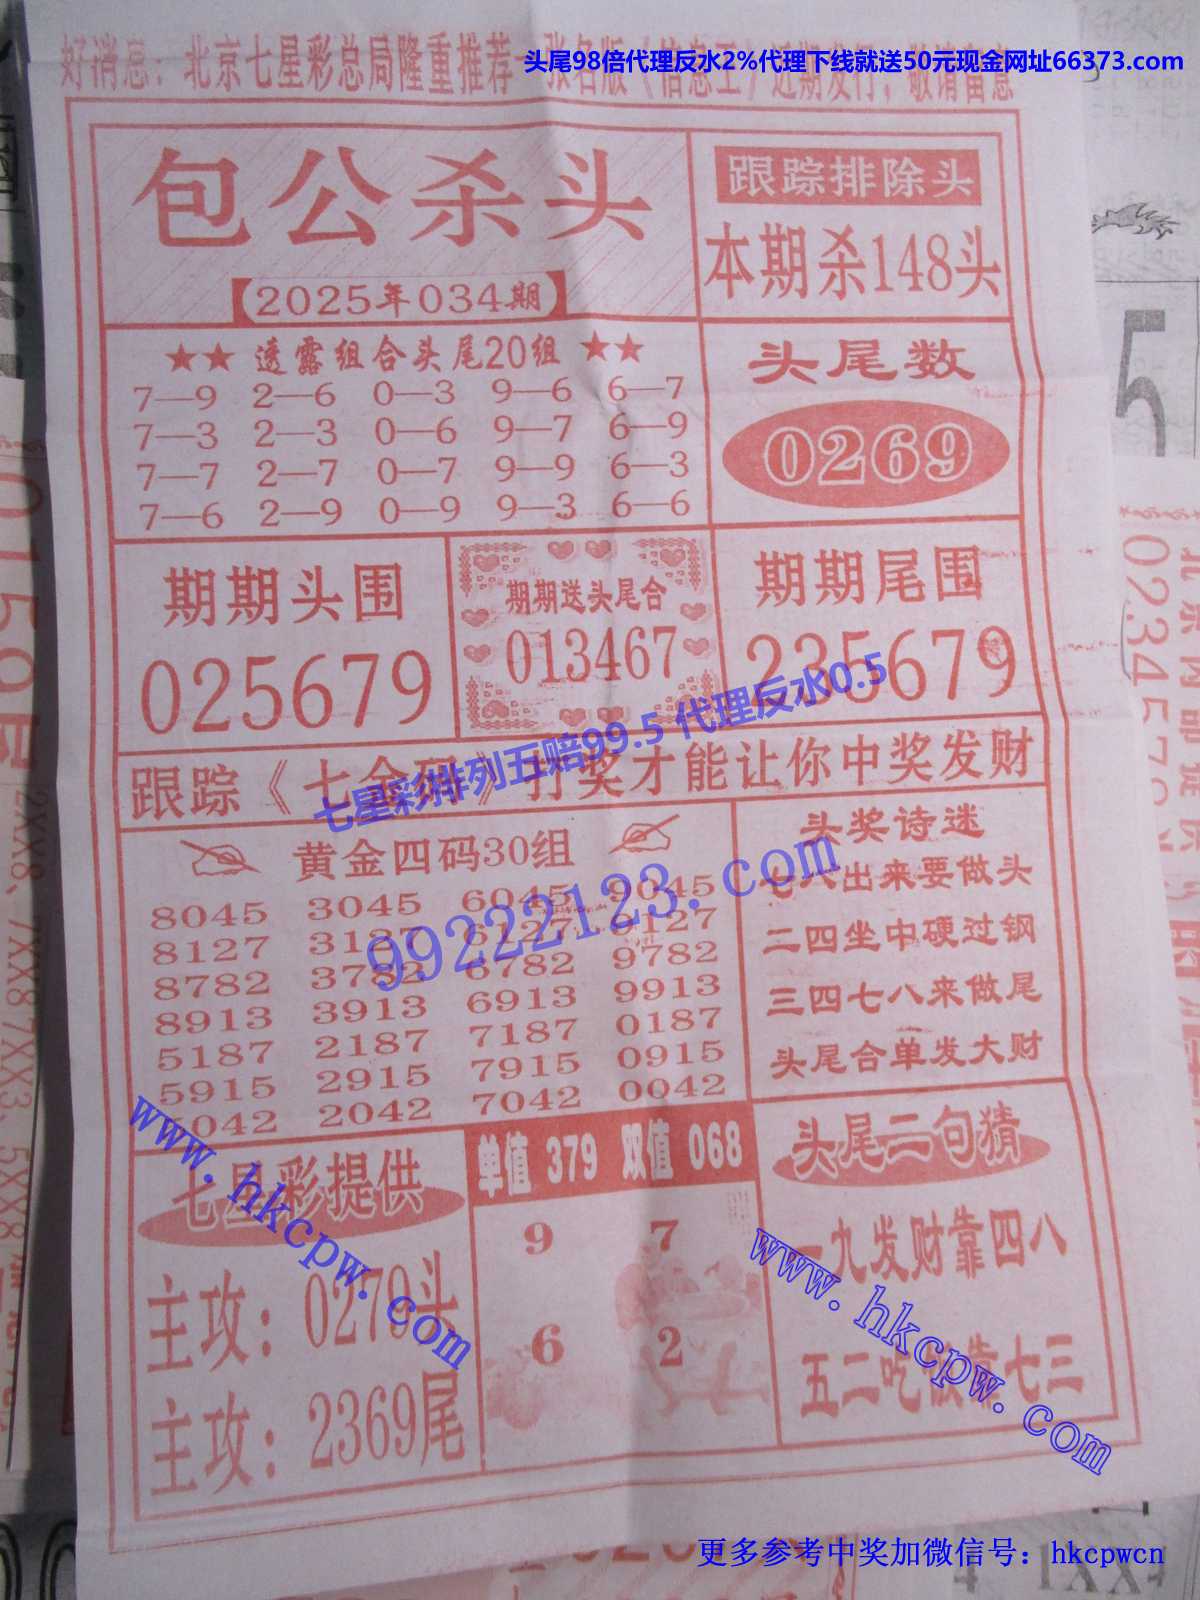 头尾98倍代理反水2%代理下线就送50元现金网址66373.com
好消息：北京七星彩总局隆重推荐
近期发行，敬请留意
包公杀头
【2025年034期】
跟踪排除头
本期杀148头
★★ 透露组合头尾20组 ★★
7—9 2—6 0—3 9—6 6—7
7—3 2—3 0—6 9—7 6—9
7—7 2—7 0—7 9—9 6—3
7—6 2—9 0—9 9—3 6—6
头尾数
0269
期期头围
025679
期期送头尾合
013467
期期尾围
235679
七星彩排列五赔99.5 代理反水0.5
跟踪《七金码》打奖才能让你中奖发财
黄金四码30组
8045 3045 6045 9045
8127 3127 6127 9127
8782 3782 6782 9782
8913 3913 6913 9913
5187 2187 7187 0187
5915 2915 7915 0915
5042 2042 7042 0042
99222123.com
头奖诗迷
七六出来要做头
二四坐中硬过钢
三四七八来做尾
头尾合单发大财
七星彩提供
主攻：0279头
主攻：2369尾
www.hkcpw.com
单值 379 双值 068
9 7
6 2
头尾二句猜
一九发财靠四八
五二吃饭靠七三
www.hkcpw.com
更多参考中奖加微信号：hkcpwcn